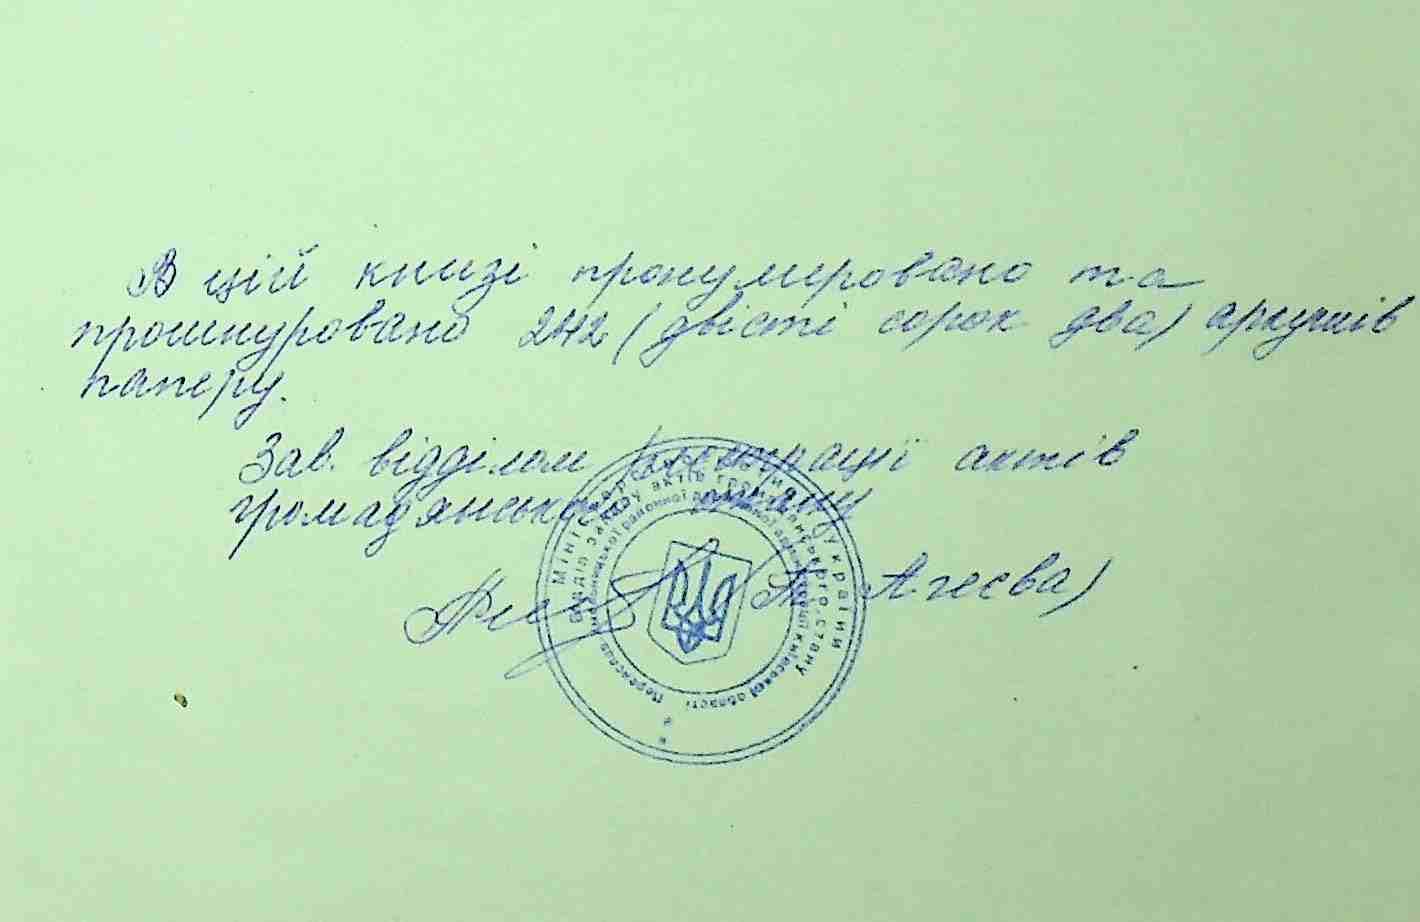 В цій книзі пронумеровано та
прошнуровано 242 (двісті сорок два) аркушів
паперу.
Зав. відділом реєстрації актів
громадянського стану
А. Агеєва)
Міністерство юстиції України
Відділ запису актів громадянського стану
районної державної адміністрації Київської області